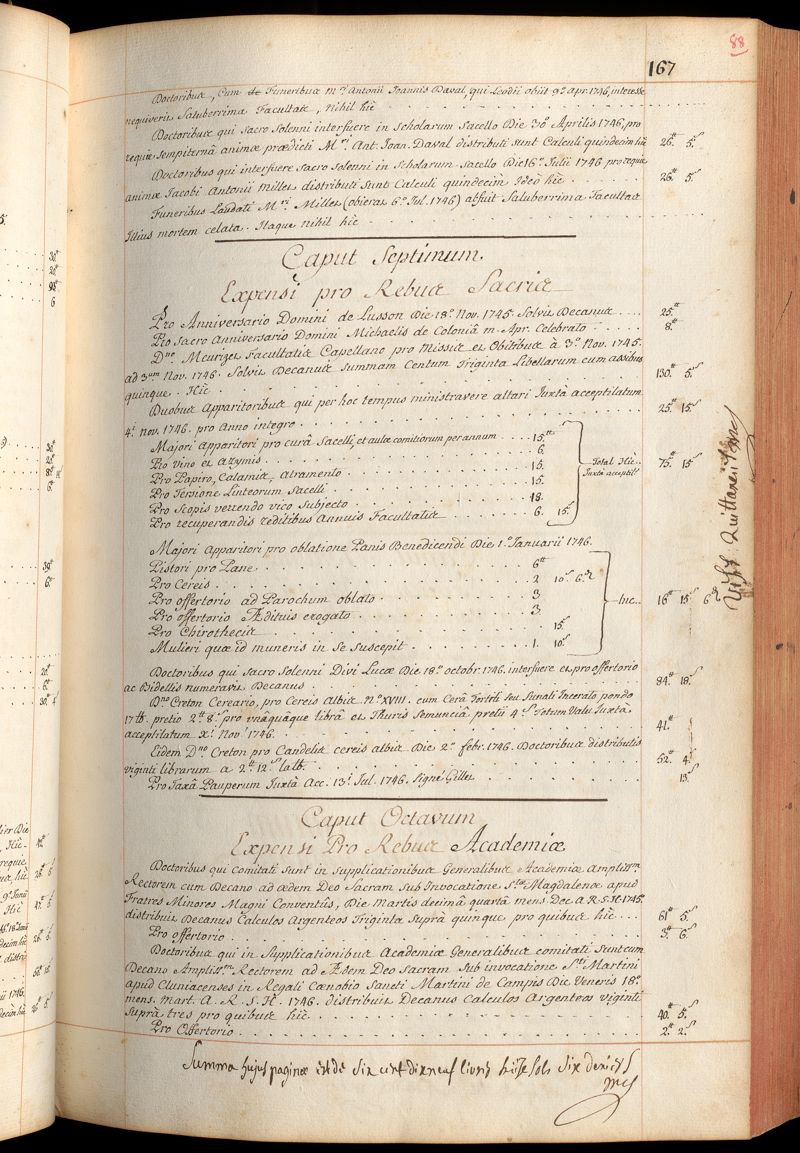 88
167
Doctoribus, Cum de Funeribus mri Antonii Joannis Daval, qui Leodii obiit 9a apr. 1746, interesse
nequiverit Saluberrima Facultas, nihil hìc
Doctoribus qui Sacro Solenni interfuere in Scholarum Sacello Die 30a Aprilis 1746, pro
requie Sempiternâ animæ prædicti Mri. Ant. Joan. Daval distributi sunt Calculi quindecim hìc 26tt 5s
Doctoribus qui interfuere Sacro Solenni in Scholarum Sacello Die 16a Julii 1746 pro requie
animæ Jacobi Antonii Millet distributi Sunt Calculi quindecim Ideò hìc 26tt 5s
Funeribus Laudati Mri Millet (obierat 6a Jul. 1746) abfuit Saluberrima Facultas
Illius mortem celata. Itaque nihil hìc
Caput Septimum.
Expensi pro Rebus Sacris
Pro Anniversario Domini de Lusson Die 18a Nov. 1745. Solvit Decanus 25tt
Pro Sacro Anniversario Domini Michaelis de Coloniâ m. Apr. Celebrato 8tt
Dno Meurizet Facultatis Capellano pro Missis et Obitibus à 3a Nov. 1745.
ad 3um Nov. 1746. Solvit Decanus Summam Centum Triginta Libellarum cum assibus
quinque. Hìc 130tt 5s
Duobus Apparitoribus qui per hoc tempus ministravere altari Juxtà acceptilatum
4i nov. 1746. pro Anno integro 25tt 15s
Majori Apparitori pro curâ Sacelli, et aulæ comitiorum per annum 15tt
Pro vino et Azymis 6
Pro Papiro, Calamis, Atramento 15
Pro Tersione Linteorum Sacelli 15
Pro Scopis verrendo vico Subjecto 18
Pro recuperandis reditibus Annuis Facultatis 6. 15s
Total Hìc Juxtà acceptil. 75tt 15s
Majori Apparitori pro oblatione Panis Benedicendi Die 1a Januarii 1746.
Pistori pro Pane 6tt
Pro Cereis 2 10s 6d
Pro offertorio ad Parochum oblato 3
Pro offertorio Ædituis erogato 3
Pro Chirothecis 15s
Mulieri quæ id muneris in se suscepit 1. 10s
hìc 16tt 15s 6d
Doctoribus qui Sacro Solenni Divi Lucæ Die 18a octobr. 1746. interfuere et pro offertorio
ac Bidellis numeravit Decanus 84tt 18s
Dno Creton Cereario, pro Cereis Albis No XVIII. cum Cerâ Tortili seu Funali Incerato pondo
17lb. pretio 2tt 8s pro unâquâque librâ et Thuris Semunciâ pretii 4s Totum Valu Juxtà
acceptilatum xa Nov. 1746. 41tt
Eidem Dno Creton pro Candelis cereis albis Die 2a febr. 1746. Doctoribus distributis
viginti librarum a 2tt 12s la lb. 52tt 4s
Pro Taxâ Pauperum Juxtà Acc. 13i Jul. 1746. Signé Gillet 13s
Caput Octavum
Expensi Pro Rebus Academiæ
Doctoribus qui comitati sunt in Supplicationibus Generalibus Academiæ Ampliss.m
Rectorem cum Decano ad ædem Deo Sacram Sub Invocatione Stæ Magdalenæ apud
Fratres Minores Magni Conventûs, Die Martis decimâ quartâ mens. Dec. A. R. S. H. 1745.
distribuit Decanus Calculos Argenteos Triginta Suprà quinque pro quibus hìc 61tt 5s
Pro offertorio 3tt 6s
Doctoribus qui in Supplicationibus Academiæ Generalibus comitati sunt cum
Decano Ampliss.m Rectorem ad Ædem Deo Sacram Sub invocatione Sti Martini
apud Cluniacenses in Regali Cœnobio Sancti Martini de Campis Die Veneris 18a
mens. Mart. A. R. S. H. 1746. distribuit Decanus Calculos Argenteos viginti
Suprà tres pro quibus hìc 40tt 5s
Pro Offertorio 2tt 2s
Summa hujus paginæ est de Six cent dix neuf livres seize sols six deniers